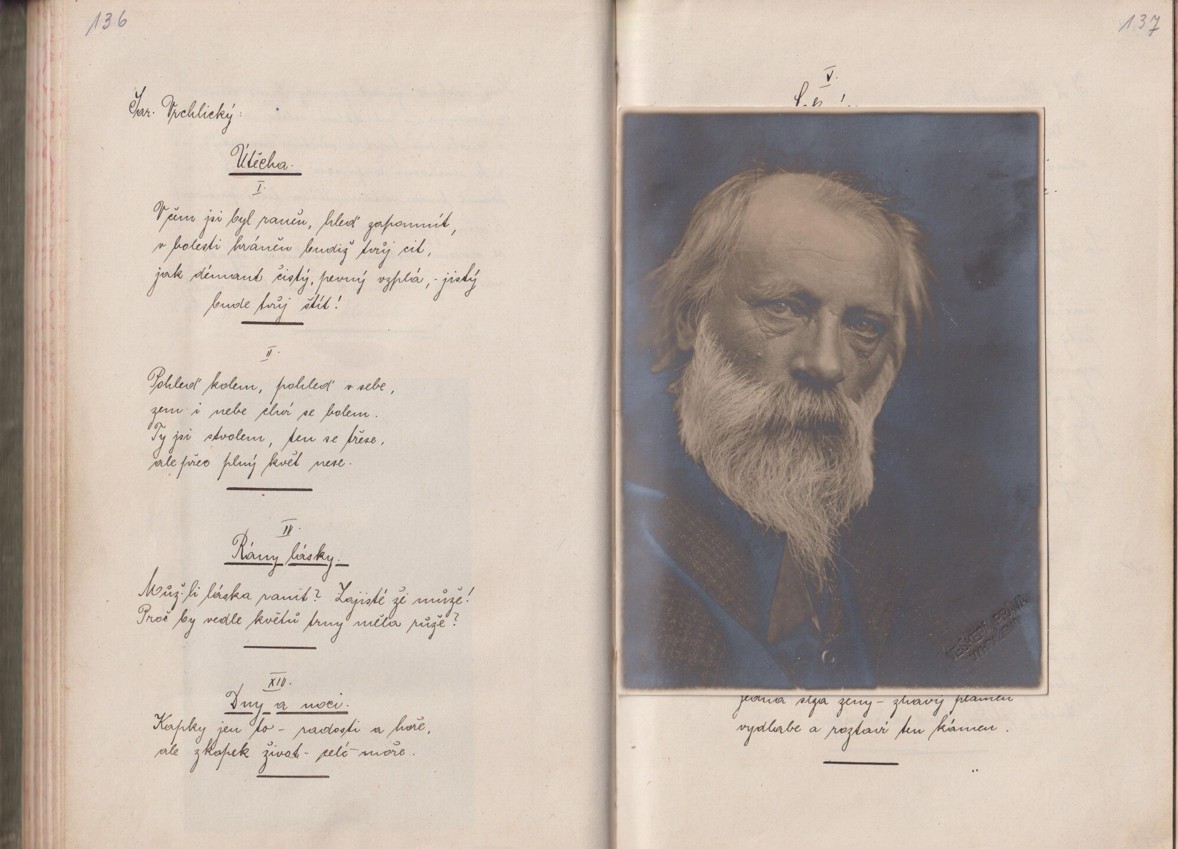 136
Jar. Vrchlický:
Útěcha.
I.
V čem jsi byl raněn, hleď zapomnít,
v bolesti hráněn budiž tvůj cit,
jak démant čistý, pevný vzplá, - jistý
bude tvůj štít!
II.
Pohleď kolem, pohleď v sebe,
zem i nebe chví se bolem.
Ty jsi stvolem, ten se třese,
ale přec plný květ nese.
IV.
Rány lásky.
Můž-li láska ranit? Zajisté že může!
Proč by vedle květů trny měla růže?
XIII.
Dny a noci.
Kapky jen to - radosti a hoře,
ale z kapek život - celé moře.
137
V.
jedna slza ženy - žhavý plamen
vydlabe a roztaví ten kámen.